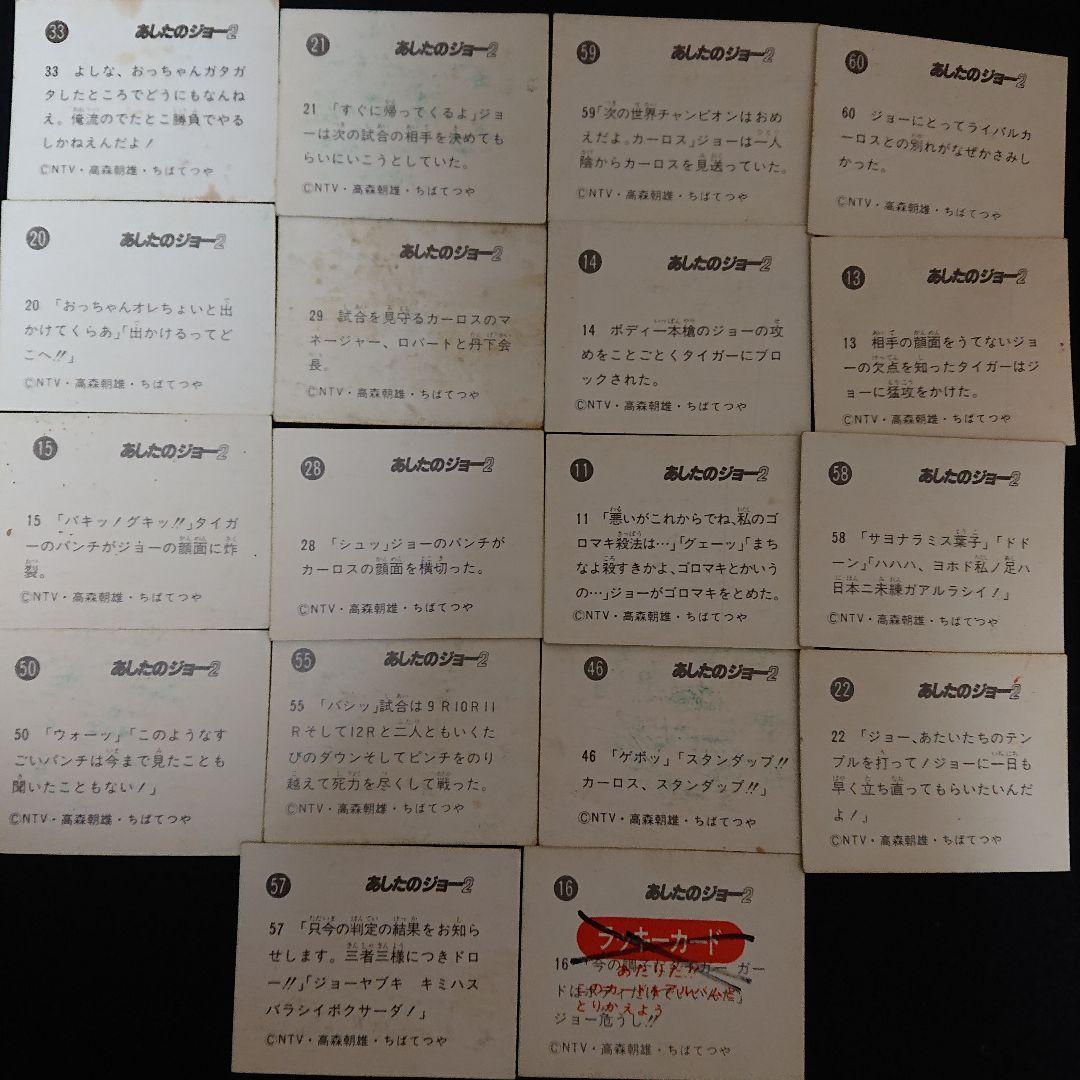 33 あしたのジョー2
33 よしな、おっちゃんガタガ
タしたところでどうにもなんね
え。俺流のでたとこ勝負でやる
しかねえんだよ！
ⒸNTV・高森朝雄・ちばてつや
21 あしたのジョー2
21 「すぐに帰ってくるよ」ジョ
ーは次の試合の相手を決めても
らいにいこうとしていた。
ⒸNTV・高森朝雄・ちばてつや
59 あしたのジョー2
59「次の世界チャンピオンはおめ
えだよ。カーロス」ジョーは一人
陰からカーロスを見送っていた。
ⒸNTV・高森朝雄・ちばてつや
60 あしたのジョー2
60 ジョーにとってライバルカ
ーロスとの別れがなぜかさみし
かった。
ⒸNTV・高森朝雄・ちばてつや
20 あしたのジョー2
20 「おっちゃんオレちょいと出
かけてくらあ」「出かけるってど
こへ!!」
ⒸNTV・高森朝雄・ちばてつや
あしたのジョー2
29 試合を見守るカーロスのマ
ネージャー、ロバートと丹下会
長。
ⒸNTV・高森朝雄・ちばてつや
14 あしたのジョー2
14 ボディー本槍のジョーの攻
めをことごとくタイガーにブロ
ックされた。
ⒸNTV・高森朝雄・ちばてつや
13 あしたのジョー2
13 相手の顔面をうてないジョ
ーの欠点を知ったタイガーはジ
ョーに猛攻をかけた。
ⒸNTV・高森朝雄・ちばてつや
15 あしたのジョー2
15 「バキッ！グキッ!!」タイガ
ーのパンチがジョーの顔面に炸
裂。
ⒸNTV・高森朝雄・ちばてつや
28 あしたのジョー2
28 「シュッ」ジョーのパンチが
カーロスの顔面を横切った。
ⒸNTV・高森朝雄・ちばてつや
11 あしたのジョー2
11 「悪いがこれからでね、私のゴ
ロマキ殺法は…」「グェーッ」「まち
なよ殺すきかよ、ゴロマキとかいう
の…」ジョーがゴロマキをとめた。
ⒸNTV・高森朝雄・ちばてつや
58 あしたのジョー2
58 「サヨナラミス葉子」「ドド
ーン」「ハハハ、ヨホド私ノ足ハ
日本ニ未練ガアルラシイ！」
ⒸNTV・高森朝雄・ちばてつや
50 あしたのジョー2
50 「ウォーッ」「このようなす
ごいパンチは今まで見たことも
聞いたこともない！」
ⒸNTV・高森朝雄・ちばてつや
55 あしたのジョー2
55 「バシッ」試合は9R10R11
Rそして12Rと二人ともいくた
びのダウンそしてピンチをのり
越えて死力を尽くして戦った。
ⒸNTV・高森朝雄・ちばてつや
46 あしたのジョー2
46 「ゲボッ」「スタンダップ!!
カーロス、スタンダップ!!」
ⒸNTV・高森朝雄・ちばてつや
22 あしたのジョー2
22 「ジョー、あたいたちのテン
プルを打って！ジョーに一日も
早く立ち直ってもらいたいんだ
よ！」
ⒸNTV・高森朝雄・ちばてつや
57 あしたのジョー2
57 「只今の判定の結果をお知ら
せします。三者三様につきドロ
ー!!」「ジョーヤブキ キミハス
バラシイボクサーダ！」
ⒸNTV・高森朝雄・ちばてつや
16 あしたのジョー2
ラッキーカード
16 「今の調子 ガー ガー
あたりだ
ドはボディだけでいいんだ」
このカードをアルバムと
とりかえよう
ジョー危うし!!
ⒸNTV・高森朝雄・ちばてつや